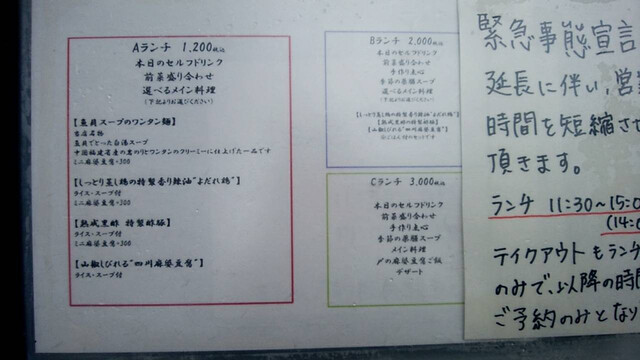 Aランチ 1,200税込
本日のセルフドリンク
前菜盛り合わせ
選べるメイン料理
(下記よりお選びください)
スープのワンタン麺】
当店名物
でとった白湯スープ
ミニ麻婆豆腐+300
【しっとり蒸し鶏の特製香り辣油"よだれ鶏"】
ライス・スープ付
ミニ麻婆豆腐+300
【熟成黒酢 特製酢豚】
ライス・スープ付
ミニ麻婆豆腐+300
【山椒しびれる"四川麻婆豆腐"】
ライス・スープ付
Bランチ 2,000税込
本日のセルフドリンク
前菜盛り合わせ
手作り点心
季節の薬膳スープ
選べるメイン料理
(下記よりお選びください)
【しっとり蒸し鶏の特製香り辣油"よだれ鶏"】
【熟成黒酢の特製酢豚】
【山椒しびれる"四川麻婆豆腐"】
Cランチ 3,000税込
本日のセルフドリンク
前菜盛り合わせ
手作り点心
季節の薬膳スープ
メイン料理
〆の麻婆豆腐ご飯
デザート
緊急事態宣言
延長に伴い、営
時間を短縮させ
頂きます。
ランチ 11:30～15:0
(14:0
テイクアウトもラン
のみで、以降の時
ご予約のみとなり